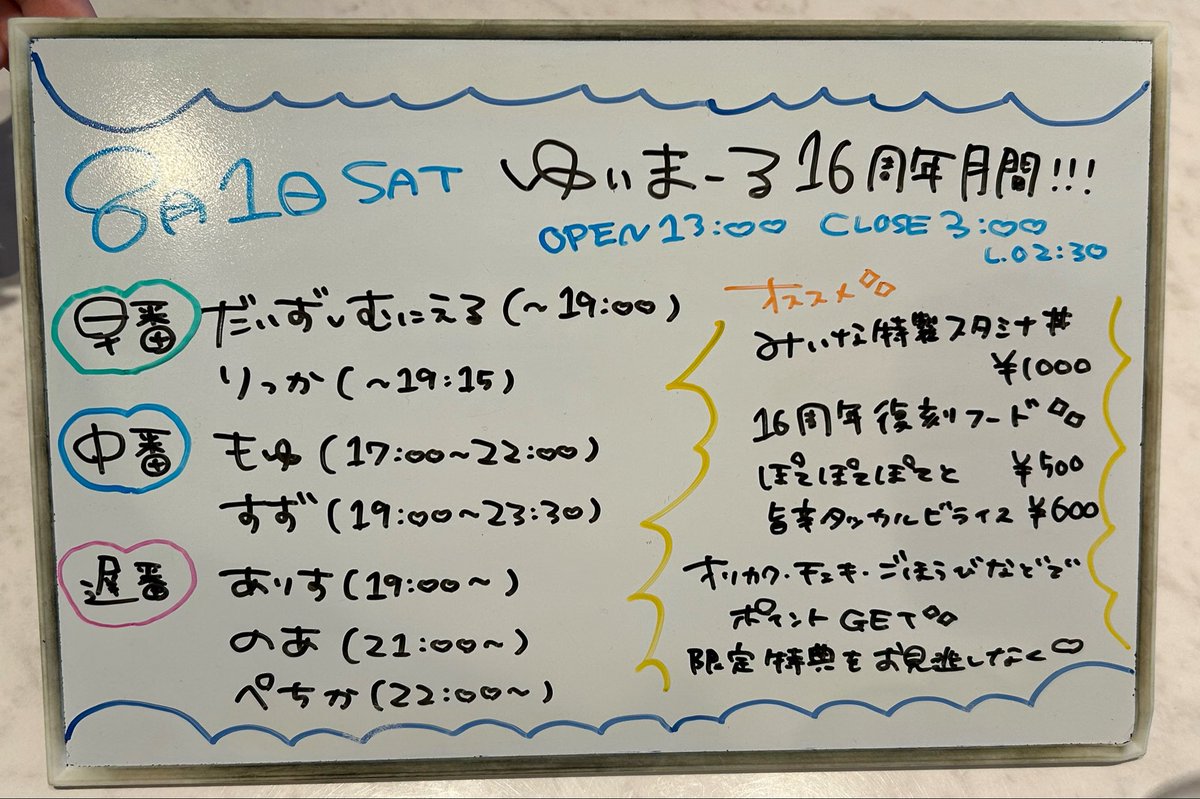 8月1日 SAT
ゆいまーる16周年月間!!!
OPEN 13:00 CLOSE 3:00
L.O 2:30
早番 だいず、むにえる (～19:00)
りっか (～19:15)
中番 もゆ (17:00～22:00)
すず (19:00～23:30)
遅番 ありす (19:00～)
のあ (21:00～)
ぺちか (22:00～)
オススメ
みいな特製スタミナ丼
¥1000
16周年復刻フード
ぽてぽてぽてと ¥500
旨辛タッカルビライス ¥600
オリカク・チェキ・ごほうびなどで
ポイントGET
限定特典をお見逃しなく♡